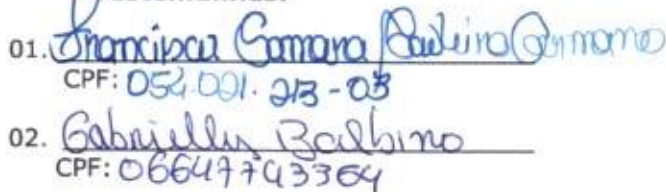 01. Francisca Samara Germano
CPF: 054.021.213-03
02. Gabrielly Balbino
CPF: 06647743364